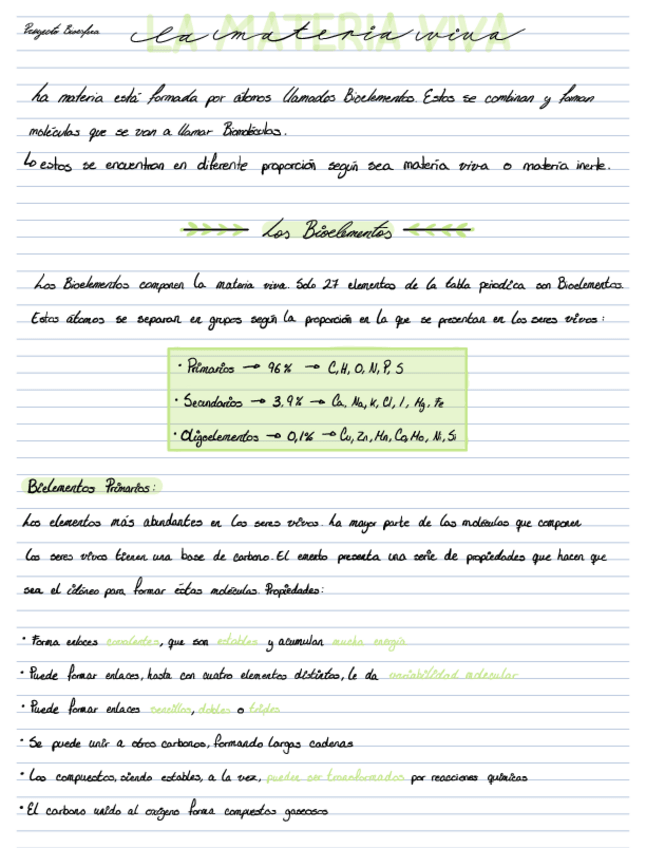 Proyecto Biosfera
LA MATERIA VIVA
la materia viva
La materia está formada por átomos llamados Bioelementos. Estos se combinan y forman
moléculas que se van a llamar Biomoléculas.
Lo estos se encuentran en diferente proporción según sea materia viva o materia inerte.
Los Bioelementos
Los Bioelementos componen la materia viva. Solo 27 elementos de la tabla periodica son Bioelementos.
Estos átomos se separan en grupos según la proporción en la que se presentan en los seres vivos:
· Primarios → 96% → C, H, O, N, P, S
· Secundarios → 3,9% → Ca, Na, K, Cl, I, Mg, Fe
· Oligoelementos → 0,1% → Cu, Zn, Mn, Co, Mo, Ni, Si
Bielementos Primarios:
Los elementos más abundantes en los seres vivos. La mayor parte de las moléculas que componen
los seres vivos tienen una base de carbono. El presenta una serie de propiedades que hacen que
sea el idóneo para formar éstas moléculas. Propiedades:
· Forma enlaces covalentes, que son estables y acumulan mucha energía
· Puede formar enlaces, hasta con cuatro elementos distintos, le da variabilidad molecular
· Puede formar enlaces sencillos, dobles o triples
· Se puede unir a otros carbonos, formando largas cadenas
· Los compuestos, siendo estables, a la vez, pueden ser transformados por reacciones químicas
· El carbono unido al oxígeno forma compuestos gaseosos